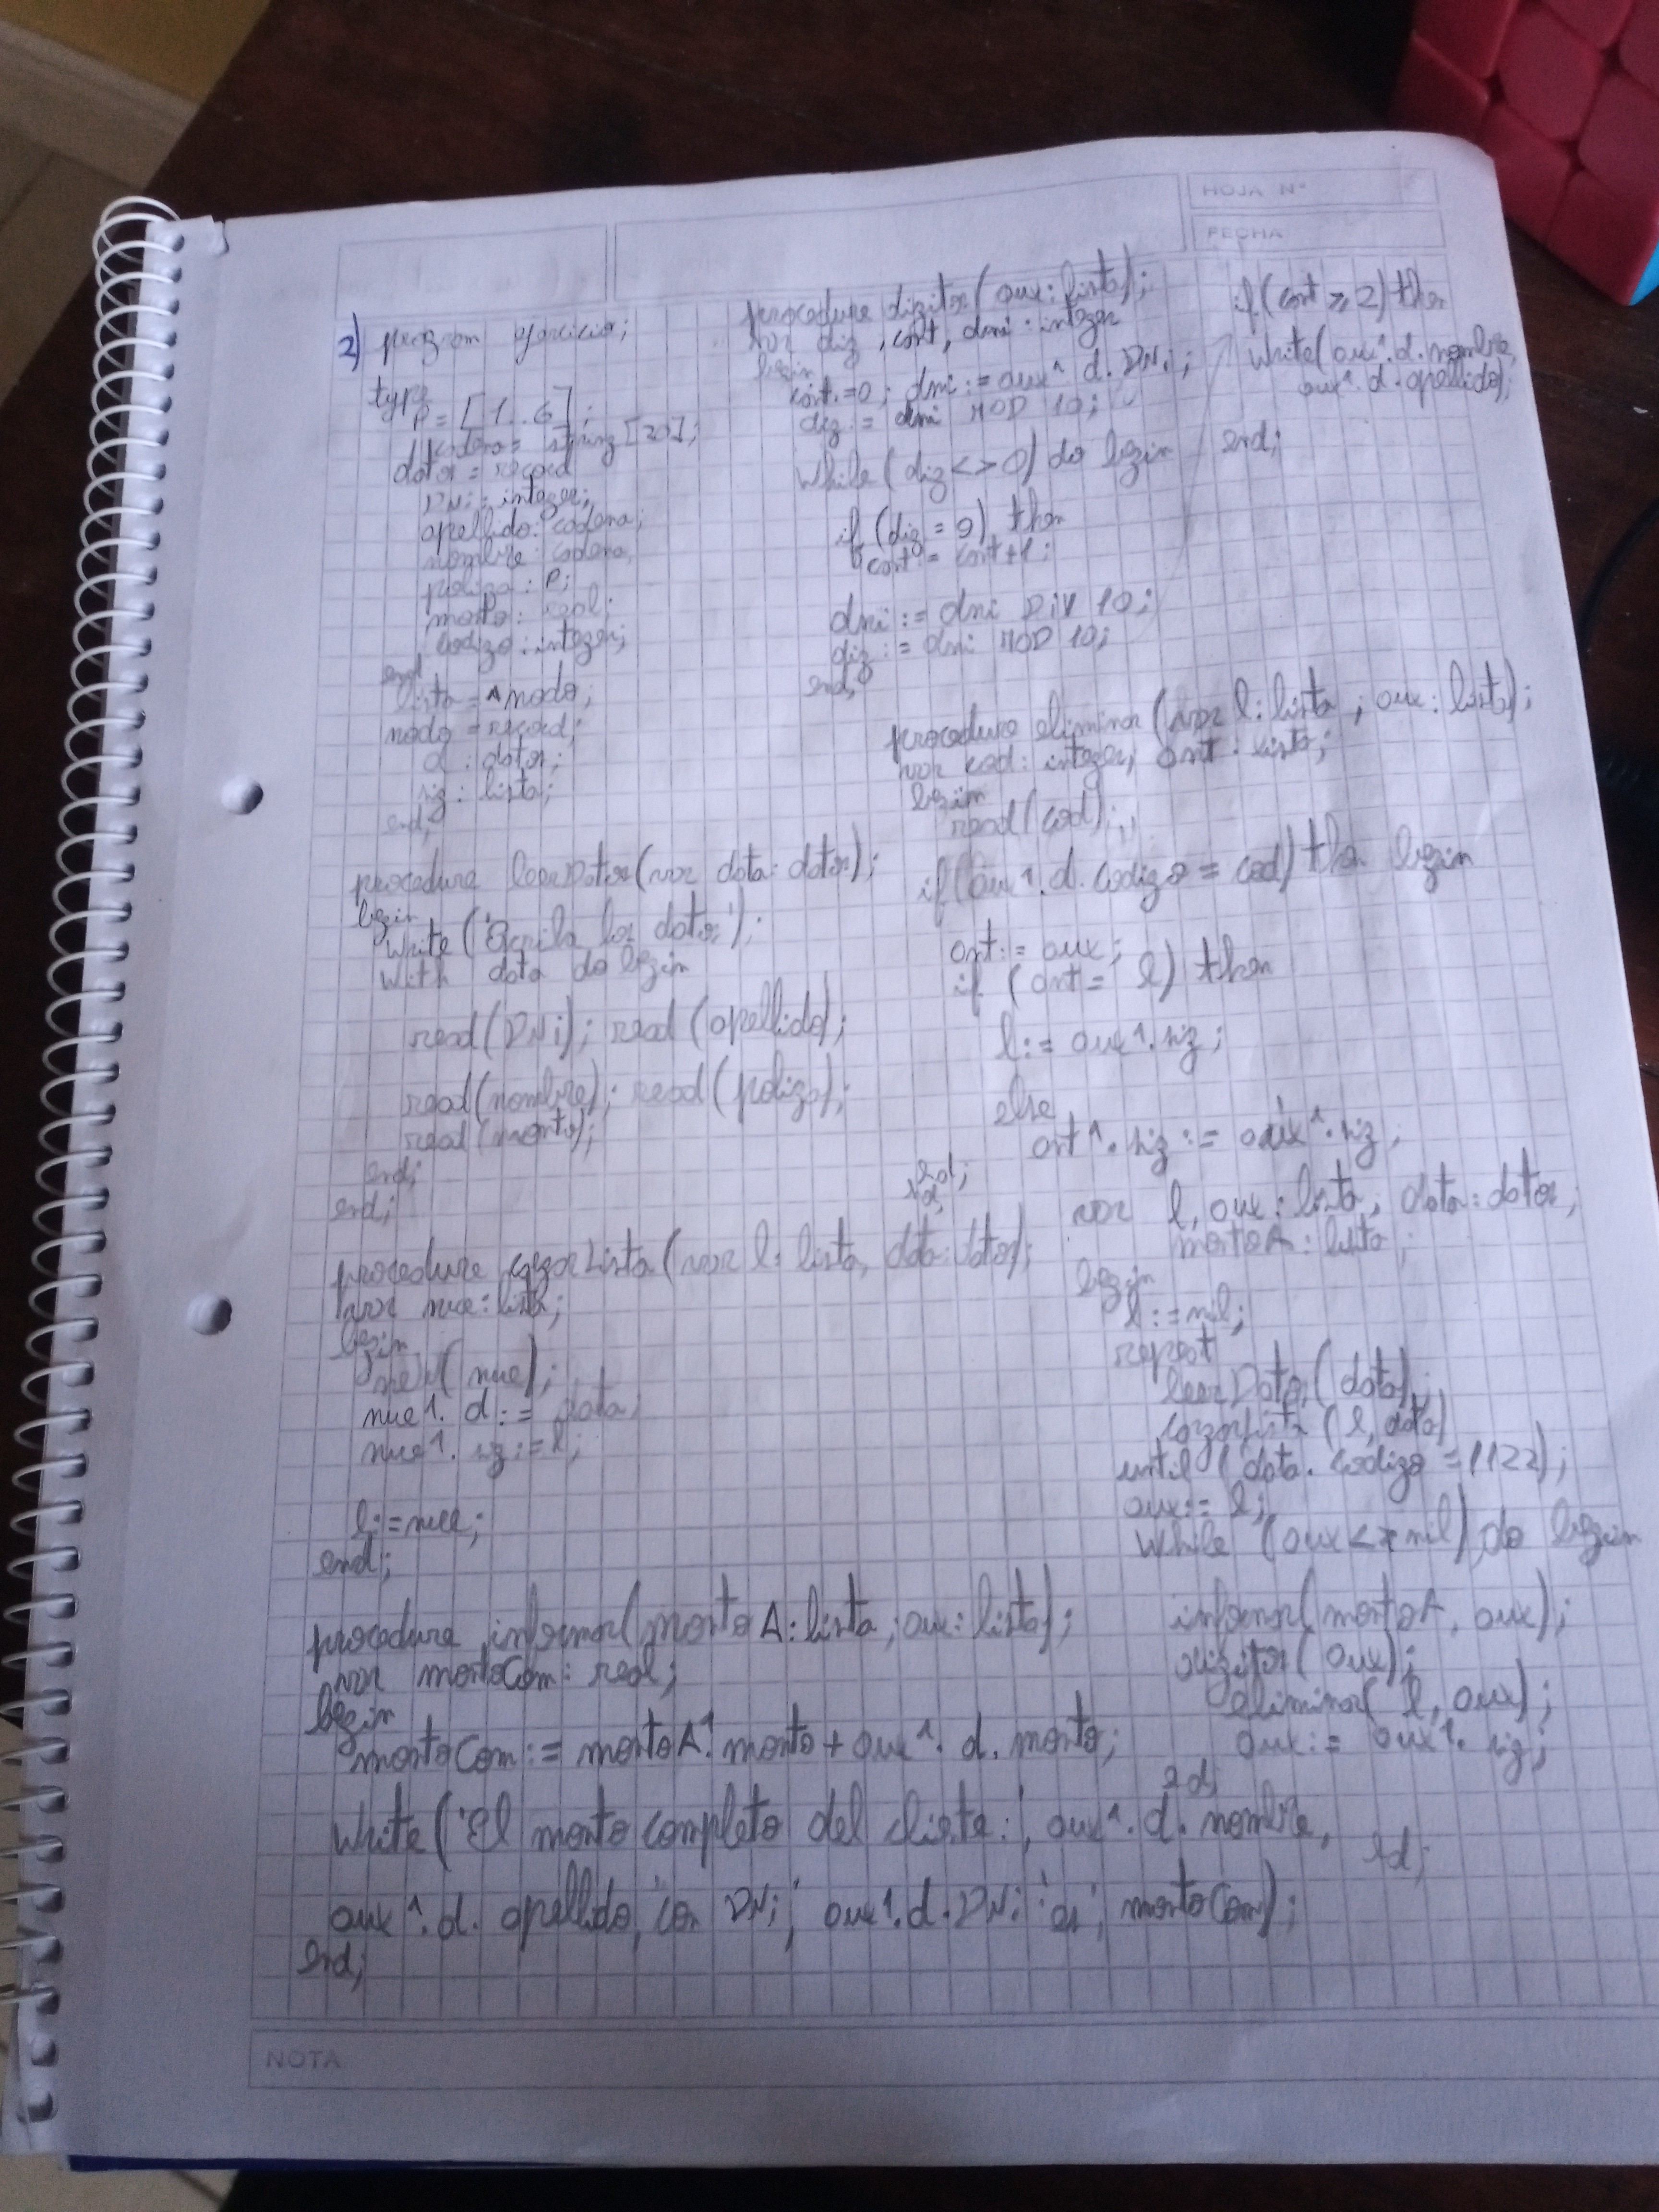 HOJA N°
FECHA
2) program ejercicio;
type
P = [1..6];
cadena = string[20];
datos = record
DNi : integer;
apellido: cadena;
nombre: cadena;
poliza : P;
monto: real;
codigo : integer;
end
lista = ^nodo;
nodo = record;
d : datos;
sig : lista;
end;
procedure leerDatos(var data: datos);
begin
write('Escriba los datos:');
with data do begin
read(DNi); read(apellido);
read(nombre); read(poliza);
read(monto);
end;
end;
procedure cargarLista(var l: lista, data: datos);
var nue: lista;
begin
new(nue);
nue^. d := data;
nue^. sig := l;
l := nue;
end;
procedure informar(montoA: lista; aux: lista);
var montoCom: real;
begin
montoCom := montoA^. monto + aux^. d. monto;
write('El monto completo del cliente:', aux^. d. nombre,
aux^. d. apellido, 'con DNi', aux^. d. DNi 'es', montoCom);
end;
procedure digitos(aux: lista);
var dig, cont, dni : integer
begin
cont:=0; dni := aux^. d. DNi;
dig := dni MOD 10;
while (dig <> 0) do begin
if (dig = 9) then
cont := cont+1;
dni := dni DiV 10;
dig := dni MOD 10;
end;
if (cont >= 2) then
write(aux^. d. nombre,
aux^. d. apellido);
end;
procedure eliminar(var l: lista; aux: lista);
var cod: integer; ant: lista;
begin
read(cod);
if (aux^. d. codigo = cod) then begin
ant := aux;
if (ant = l) then
l := aux^. sig;
else
ant^. sig := aux^. sig;
end;
var l, aux: lista; data: datos;
montoA: lista;
begin
l := nil;
repeat
leerDatos(data);
cargarLista(l, data)
until (data. codigo = 1122);
aux := l;
while (aux <> nil) do begin
informar(montoA, aux);
digitos(aux);
eliminar(l, aux);
aux := aux^. sig;
end;
end;
NOTA